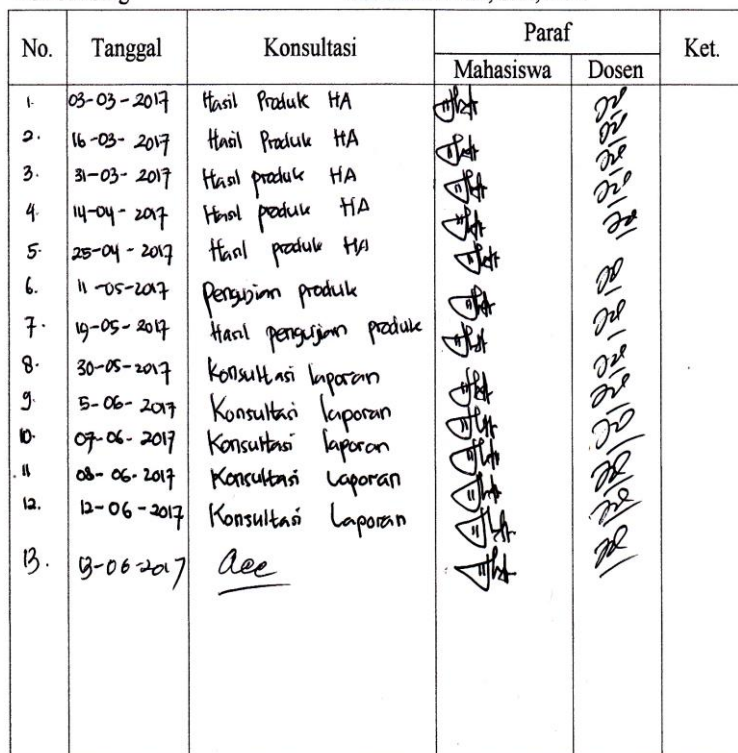 No. Tanggal Konsultasi Paraf Ket.
Mahasiswa Dosen
1. 03-03-2017 Hasil Produk HA
2. 16-03-2017 Hasil Produk HA
3. 31-03-2017 Hasil produk HA
4. 14-04-2017 Hasil produk HA
5. 25-04-2017 Hasil produk HA
6. 11-05-2017 Pengujian produk
7. 19-05-2017 Hasil pengujian produk
8. 30-05-2017 Konsultasi laporan
9. 5-06-2017 Konsultasi laporan
10. 07-06-2017 Konsultasi laporan
11 08-06-2017 Konsultasi Laporan
12. 12-06-2017 Konsultasi Laporan
13. 13-06-2017 acc